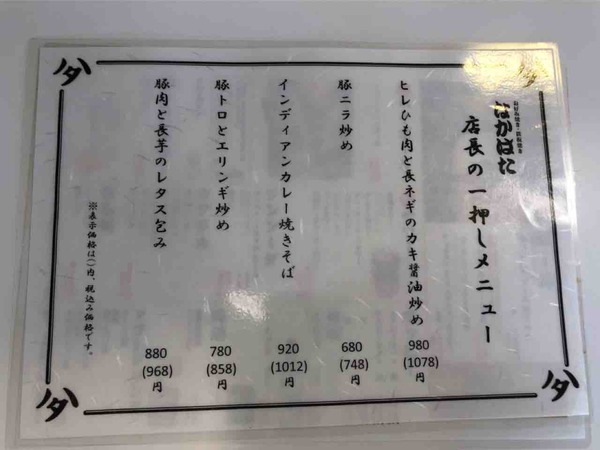 お好み焼き・鉄板焼き
はかはた
店長の一押しメニュー
ヒレひも肉と長ネギのカキ醤油炒め
980
(1078)
円
豚ニラ炒め
680
(748)
円
インディアンカレー焼きそば
920
(1012)
円
豚トロとエリンギ炒め
780
(858)
円
豚肉と長芋のレタス包み
880
(968)
円
※表示価格は()内、税込み価格です。